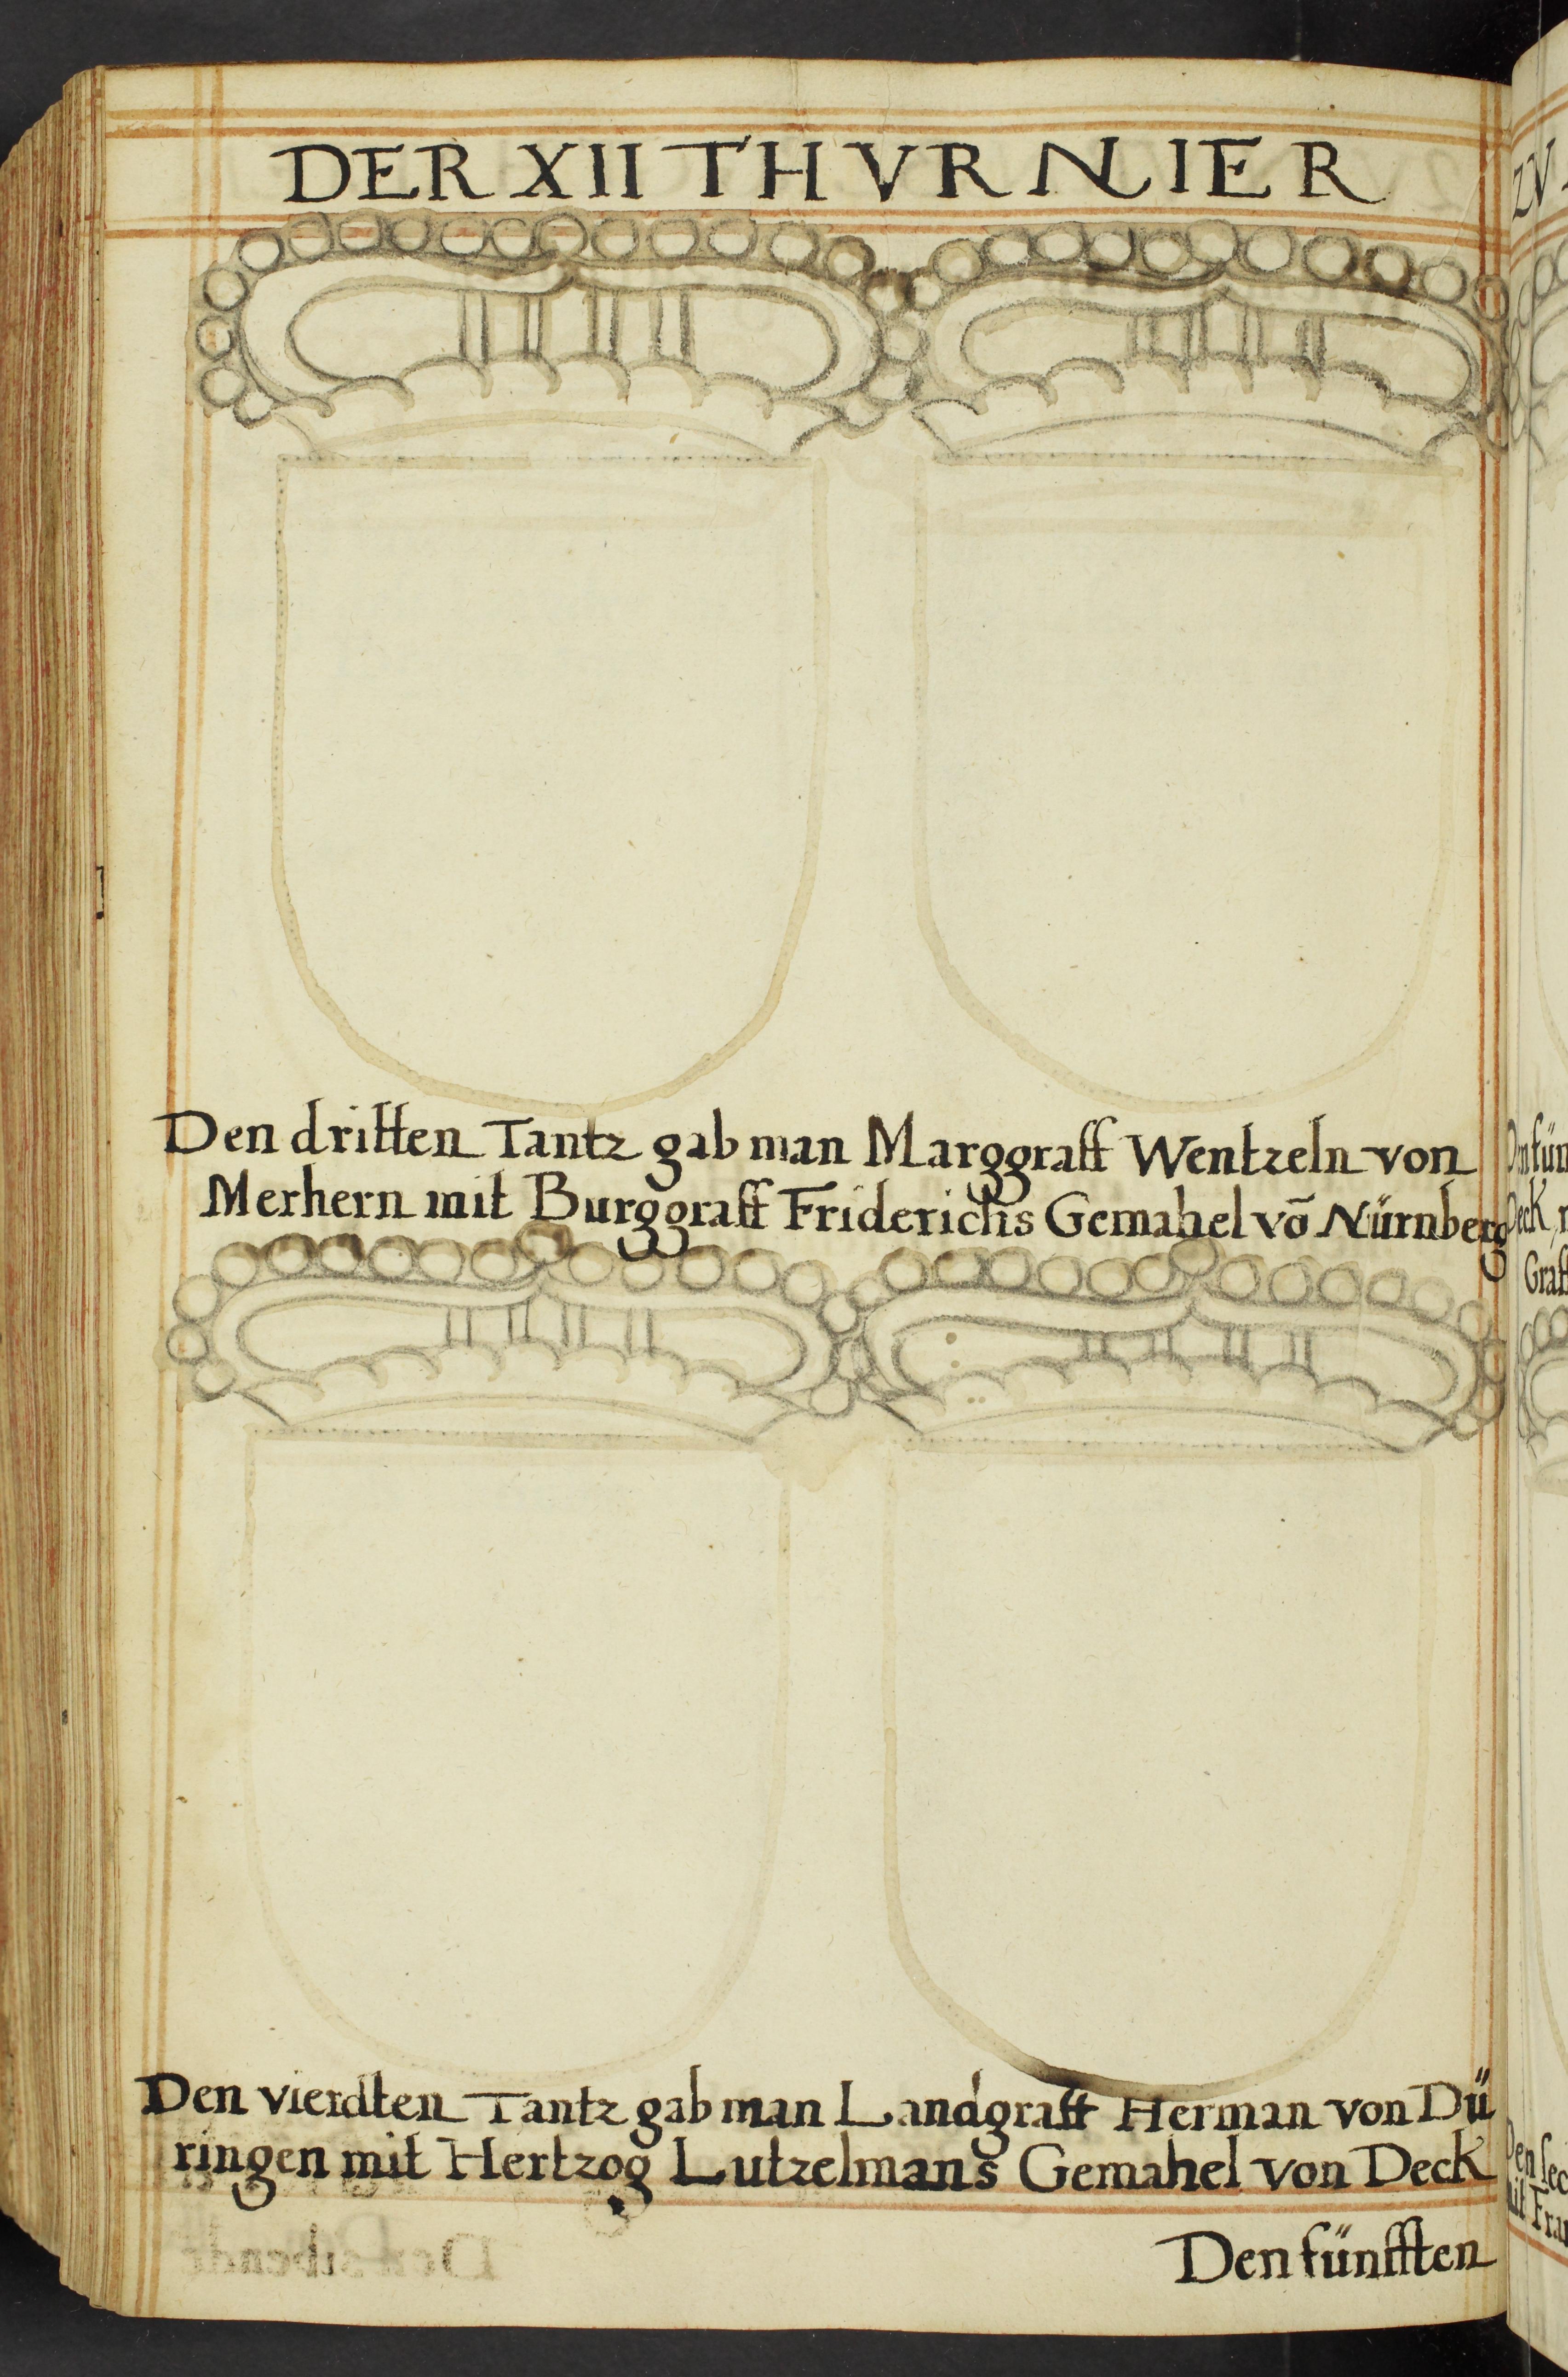 DER XII THVRNIER
Den dritten Tantz gab man Marggraff Wentzeln von
Merhern mit Burggraff Friderichs Gemahel vō Nürnberg
Den vierdten Tantz gab man Landgraff Herman von Dü
ringen mit Hertzog Lutzelmans Gemahel von Deck
Den fünfften
ZV
Deck